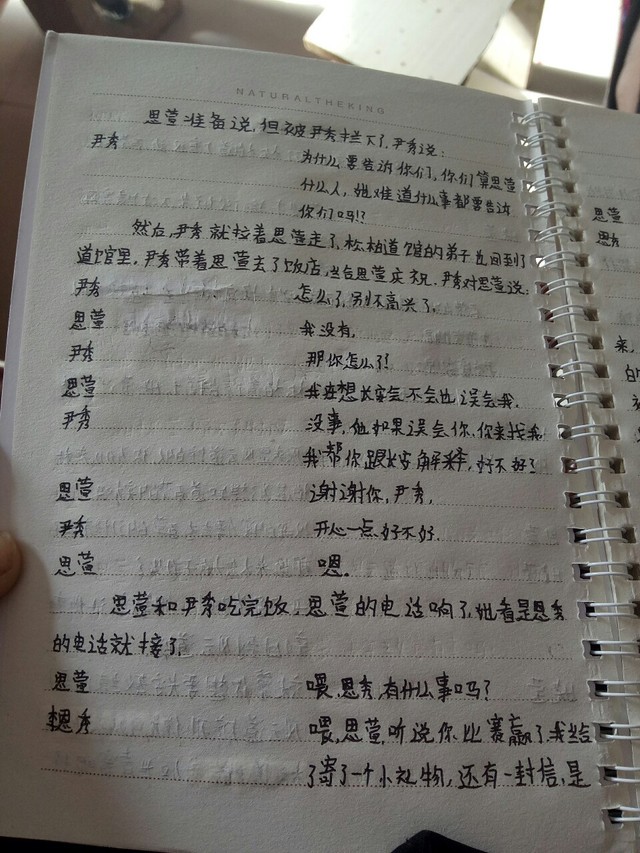 NATURALTHEKING
思萱准备说，但被尹秀拦下了，尹秀说：
尹秀 为什么要告诉你们，你们算思萱
什么人，她难道什么事都要告诉
你们吗!?
然后，尹秀就拉着思萱走了，松柏道馆的弟子也回到了
道馆里，尹秀带着思萱去了饭店，给思萱庆祝，尹秀对思萱说：
尹秀 怎么了，别不高兴了，
思萱 我没有，
尹秀 那你怎么了!
思萱 我在想长安会不会也误会我，
尹秀 没事，他如果误会你，你来找我
我帮你跟长安解释，好不好?
思萱 谢谢你，尹秀，
尹秀 开心一点，好不好，
思萱 嗯.
思萱和尹秀吃完饭，思萱的电话响了，她看是恩秀
的电话就接了
思萱 喂，恩秀，有什么事吗?
恩秀 喂，思萱，听说你比赛赢了，我给
了寄了一个小礼物，还有一封信，是
思萱
恩秀
来，